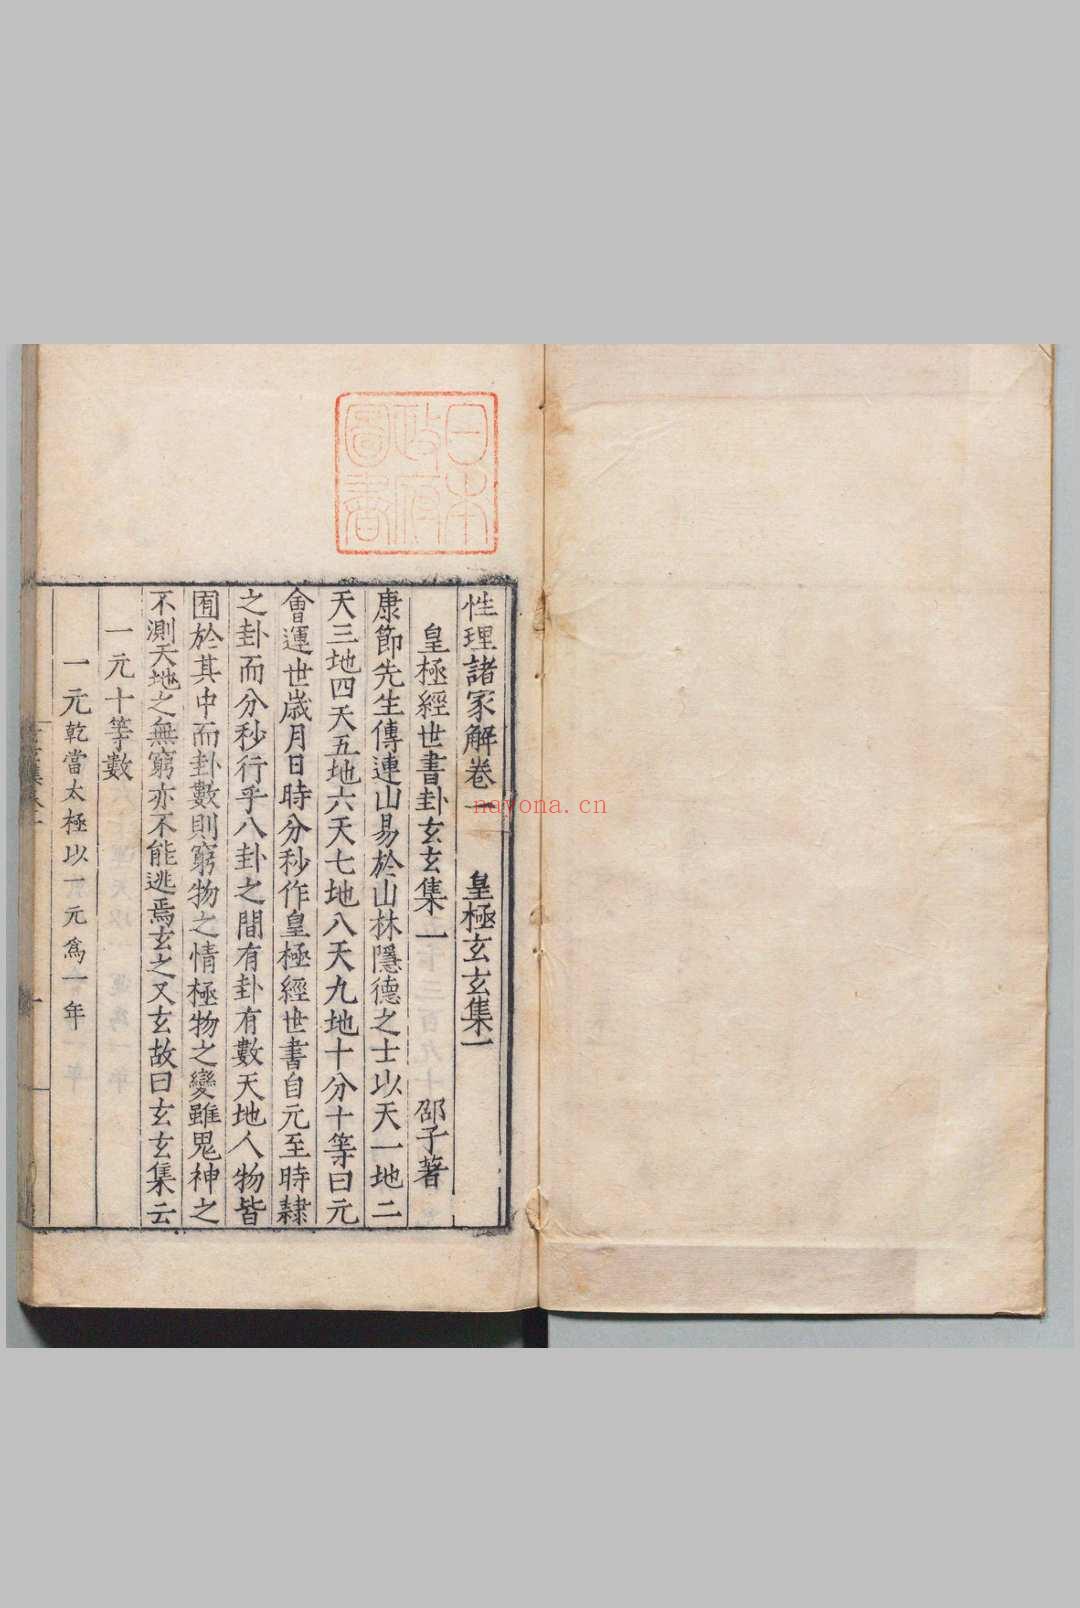 日本
政府
圖書
性理諸家解卷一　皇極玄玄集一
皇極經世書卦玄玄集一　邵子著
康節先生傳連山易於山林隱德之士以天一地二
天三地四天五地六天七地八天九地十分十等曰元
會運世歲月日時分秒作皇極經世書自元至時隸
之卦而分秒行乎八卦之間有卦有數天地人物皆
囿於其中而卦數則窮物之情極物之變雖鬼神之
不測天地之無窮亦不能逃焉玄之又玄故曰玄玄集云
一元十等數
一元乾當太極以一元為一年
nayona.cn